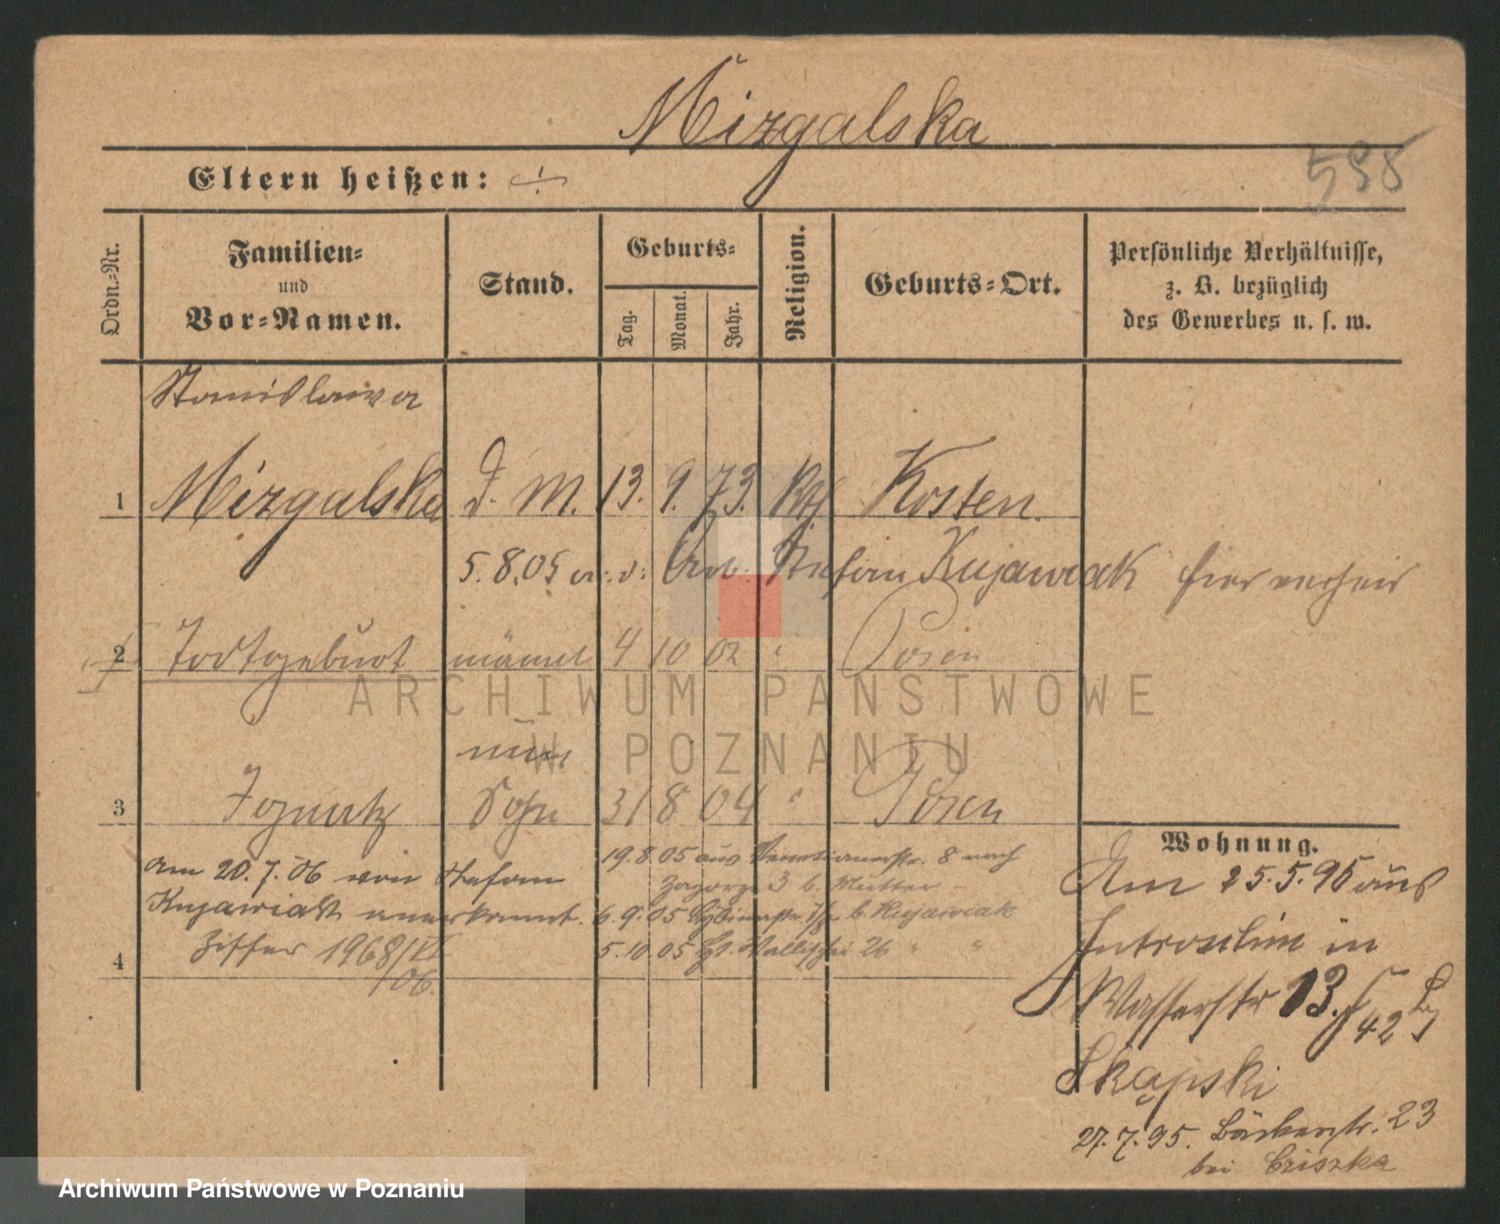 Mizgalska
598
Eltern heißen: ÷
Ordn.-Nr.
Familien-
und
Vor-Namen.
Stand.
Geburts-
Tag.
Monat.
Jahr.
Religion.
Geburts-Ort.
Persönliche Verhältnisse,
z. B. bezüglich
des Gewerbes u. s. w.
Stanislawa
1 Mizgalska d. M. 13. 9. 73. Kth Kosten.
5.8.05 Arb. Stefan Kujawiak hier
2 Todtgeburt männl 4 10 02 " Posen
ARCHIWUM PAŃSTWOWE
W POZNANIU
3 Ignatz Sohn 31 8 04 " Posen
Am 20.7.06 von Stefan
Kujawiak anerkannt.
Ziffer 1968/VI
06.
4
19.8.05 aus Venetianerstr. 8 nach
Zagorze 3 b. Mutter
6.9.05 b. Kujawiak
5.10.05 Wallischei 26 " "
Wohnung.
Am 25.5.95 aus
in
Wasserstr 13.
42
Skąpski
27.7.95. Bäckerstr. 23
bei Criszka
Archiwum Państwowe w Poznaniu